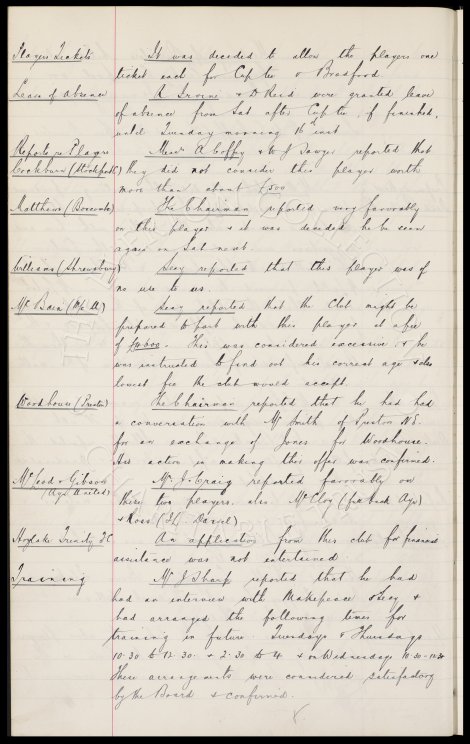 Players Tickets It was decided to allow the players one
ticket each for Cup tie v Bradford.
Leave of Absence R Irvine & D Reid were granted leave
of absence from Sat after Cup tie, if finished,
until Tuesday morning 16th inst
Reports re Players Messrs A Coffey & W J Sawyer reported that
Cockburn (Stockport C) they did not consider this player worth
more than about £500
Matthews (Boscombe) The Chairman reported very favourably
on this player & it was decided he be seen
again on Sat next.
Williams (Shrewsbury) Secy reported that this player was of
no use to us.
Mc Bain (M/c U) Secy reported that the Club might be
prepared to part with this player at a fee
of . This was considered excessive & he
was instructed to find out his correct age & also
lowest fee the club would accept.
Woodhouse (Preston) The Chairman reported that he had had
a conversation with Mr Smith of Preston N.E.
for an exchange of Jones for Woodhouse.
His action in making this offer was confirmed.
McLeod & Gibson Mr J. Craig reported favorably on
(Ayr United) these two players. also McCloy (full back Ayr)
& Ross
Hoylake Trinity FC An application from this club for financial
assistance was not entertained.
Training Mr J Sharp reported that he had
had an interview with Makepeace & Secy &
had arranged the following times for
training in future. Tuesdays & Thursdays
10.30 to 12.30. & 2.30 to 4 & on Wednesdays 10.30 -
These arrangements were considered satisfactory
by the Board & confirmed.